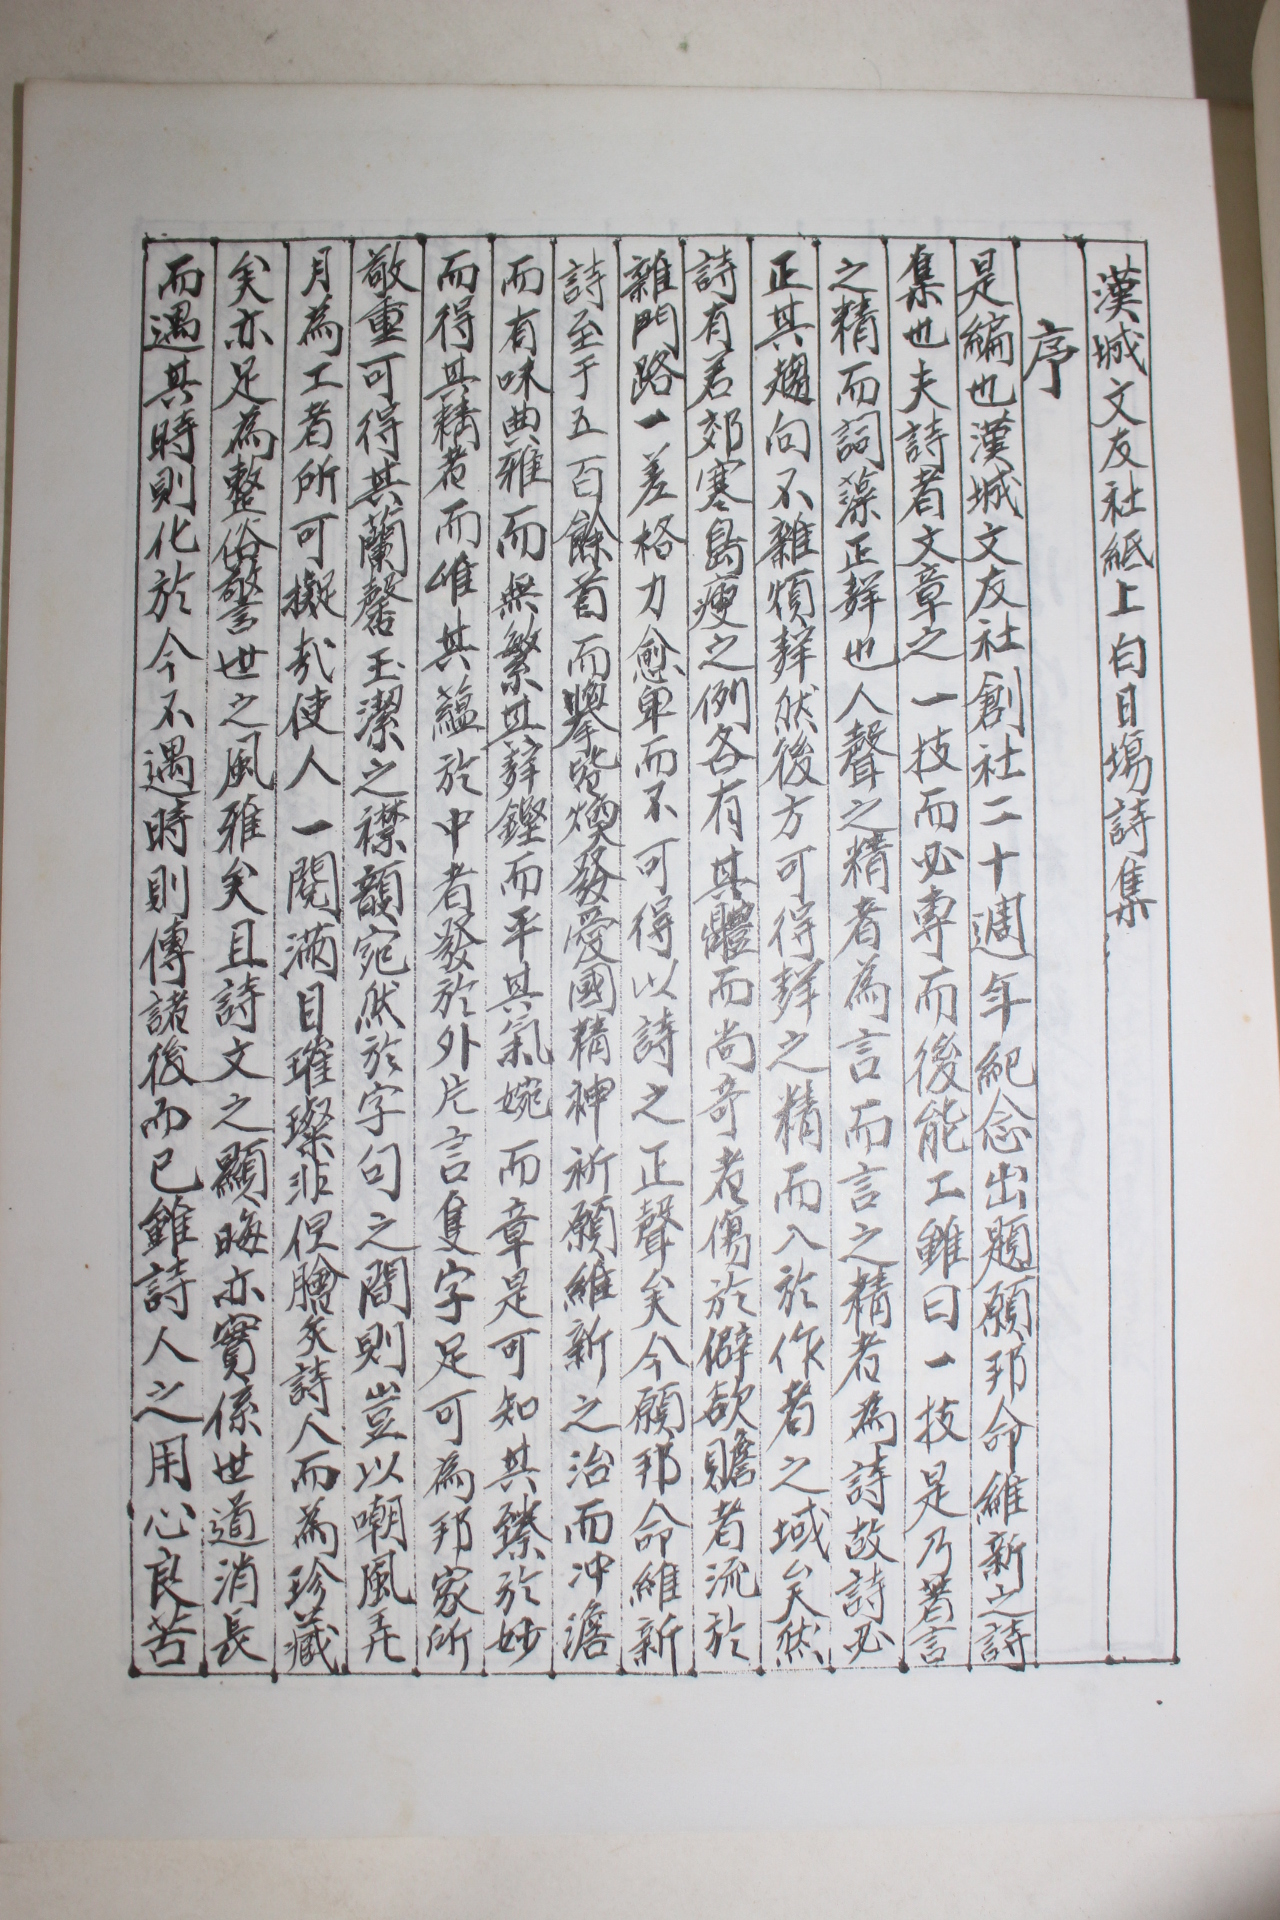 漢城文友社紙上白日場詩集
序
是編也漢城文友社創社二十週年紀念出題願邦命維新之詩
集也夫詩者文章之一技而必專而後能工雖曰一技是乃著言
之精而詞藻正鮮也人聲之精者為言而言之精者為詩故詩必
正其趨向不雜煩鮮然後方可得鮮之精而入於作者之域矣然
詩有若郊寒島瘦之例各有其體而尚奇者傷於僻欲贍者流於
雜門路一差格力愈卑而不可得以詩之正聲矣今願邦命維新
詩至于五百餘首而舉皆煥發愛國精神祈願維新之治而冲澹
而有味典雅而無繁其辞鏗而平其氣婉而章是可知其臻於妙
而得其精者而唯其蘊於中者發於外片言隻字足可為邦家所
敬重可得其蘭馨玉潔之襟韻宛然於字句之間則豈以嘲風弄
月為工者所可擬哉使人一閱滿目璀璨非但膾炙詩人而為珍藏
矣亦足為整俗警世之風雅矣且詩文之顯晦亦實係世道消長
而遇其時則化於今不遇時則傳諸後而已雖詩人之用心良苦